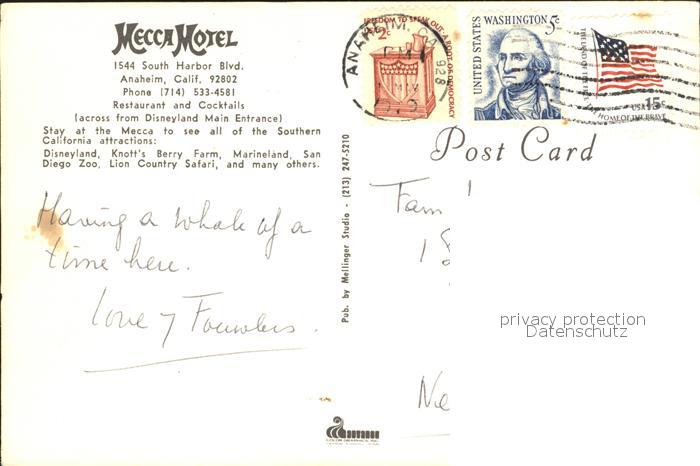 Mecca Motel
1544 South Harbor Blvd.
Anaheim, Calif. 92802
Phone (714) 533-4581
Restaurant and Cocktails
(across from Disneyland Main Entrance)
Stay at the Mecca to see all of the Southern
California attractions:
Disneyland, Knott's Berry Farm, Marineland, San
Diego Zoo, Lion Country Safari, and many others.
Having a whale of a
time here.
Love 7 Fowlers.
Pub. by Mellinger Studio - (213) 247-5210
FREEDOM TO SPEAK OUT-A ROOT OF DEMOCRACY
USA 2c
ANAHEIM, CA 928
PM
UNITED STATES
WASHINGTON 5c
THE LAND OF THE FREE
THE HOME OF THE BRAVE
USA 15c
Post Card
Fam
1
privacy protection
Datenschutz
Ne